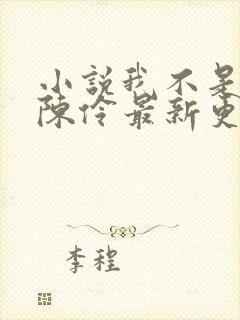 小說我不是
陳伶最新更
李程